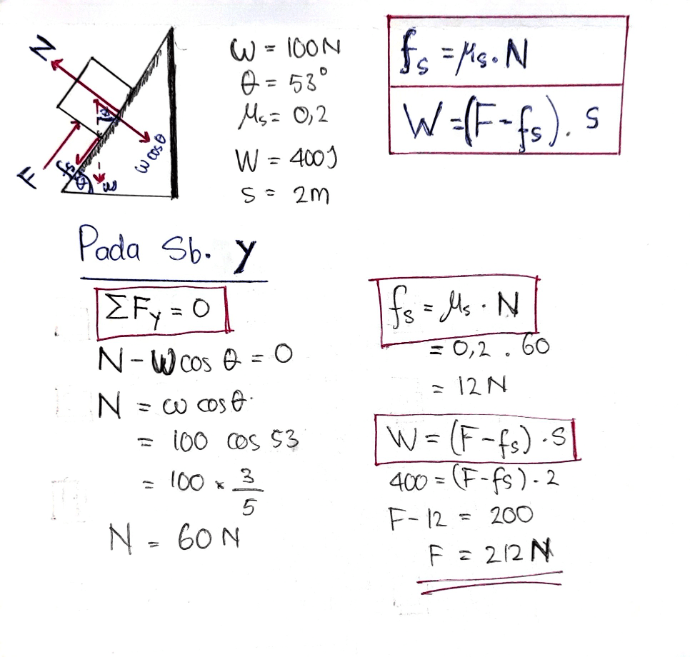 N
F
fs
θ
w
w cos θ
ω = 100N
θ = 53°
μs = 0,2
W = 400J
S = 2m
fs = μs . N
W = (F - fs) . s
Pada Sb. y
ΣFy = 0
N - W cos θ = 0
N = ω cos θ.
= 100 cos 53
= 100 x 3/5
N = 60 N
fs = μs . N
= 0,2 . 60
= 12N
W = (F - fs) . S
400 = (F - fs) . 2
F - 12 = 200
F = 212 N